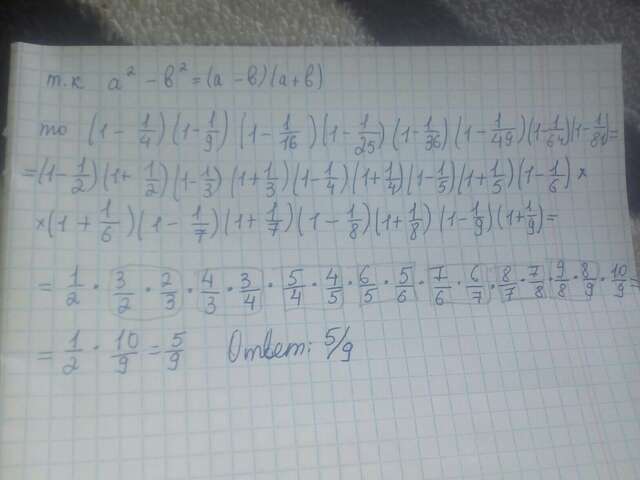 т.к a² - в² = (а - в)(а + в)
то (1 - 1/4)(1 - 1/9)(1 - 1/16)(1 - 1/25)(1 - 1/36)(1 - 1/49)(1 - 1/64)(1 - 1/81) =
= (1 - 1/2)(1 + 1/2)(1 - 1/3)(1 + 1/3)(1 - 1/4)(1 + 1/4)(1 - 1/5)(1 + 1/5)(1 - 1/6) ×
× (1 + 1/6)(1 - 1/7)(1 + 1/7)(1 - 1/8)(1 + 1/8)(1 - 1/9)(1 + 1/9) =
= 1/2 · 3/2 · 2/3 · 4/3 · 3/4 · 5/4 · 4/5 · 6/5 · 5/6 · 7/6 · 6/7 · 8/7 · 7/8 · 9/8 · 8/9 · 10/9 =
= 1/2 · 10/9 = 5/9 Ответ: 5/9